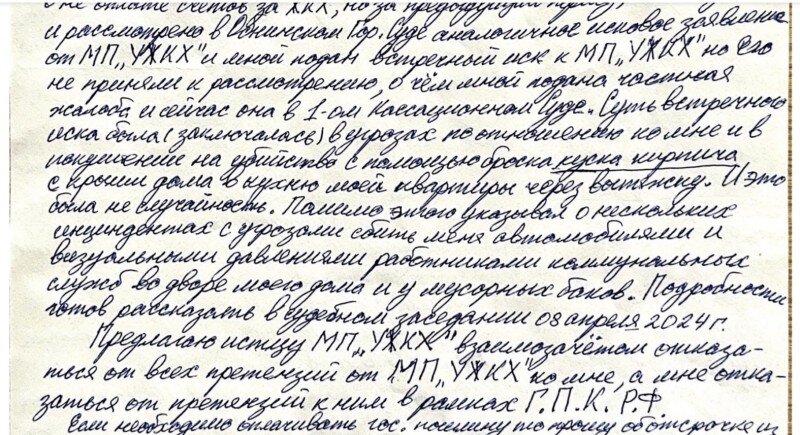 не оплате счетов за ЖКХ, но за предыдущий период
и рассмотрено в Обнинском Гор. Суде аналогичное исковое заявление
от МП „УЖКХ" и мной подан встречный иск к МП „УЖКХ" но его
не приняли к рассмотрению, о чём мной подана частная
жалоба и сейчас она в 1-ом Кассационном Суде. Суть встречного
иска была (заключалась) в угрозах по отношению ко мне и в
покушении на убийство с помощью броска куска кирпича
с крыши дома в кухню моей квартиры через вытяжку. И это
была не случайность. Помимо этого указывал о нескольких
инциндентах с угрозами сбить меня автомобилями и
визуальными давлениями работниками коммунальных
служб во дворе моего дома и у мусорных баков. Подробности
готов рассказать в судебном заседании 08 апреля 2024 г.
Предлагаю истцу МП „УЖКХ" взаимозачётом отказа-
ться от всех претензий от МП „УЖКХ" ко мне, а мне отка-
заться от претензий к ним в рамках Г.П.К. Р.Ф.
Если необходимо оплачивать гос. пошлину то прошу об отсрочке из